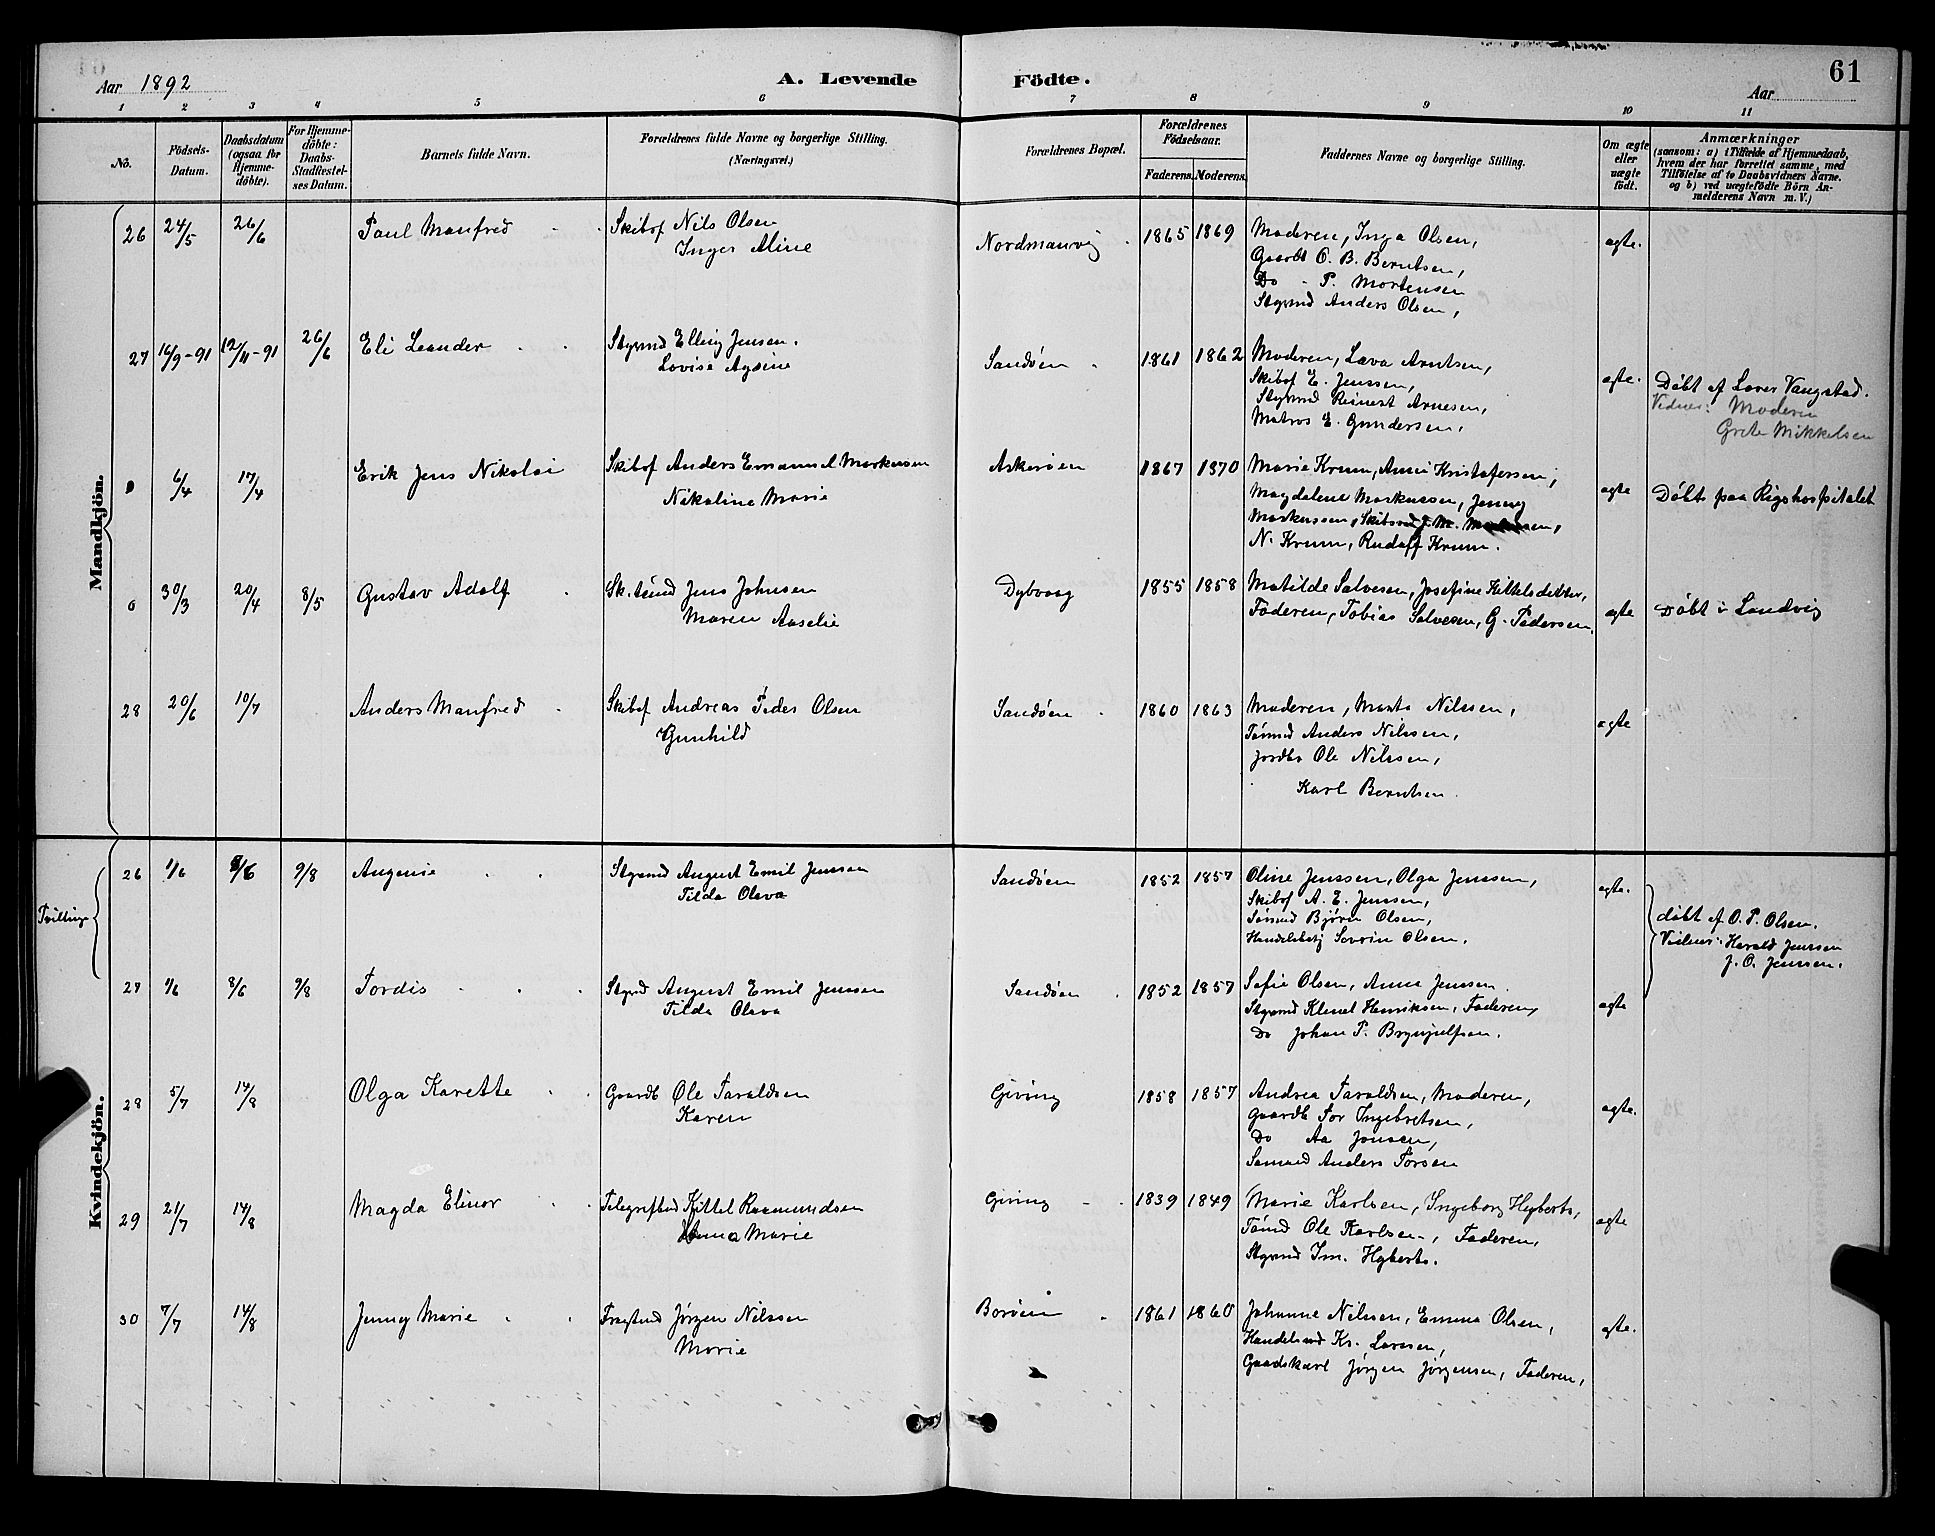 Aar 1892
A. Levende
Födte.
61
Aar
1 2 3 4 5 6 7 8 9 10 11
No.
Födsels-Datum.
Daabsdatum (ogsaa for Hjemme-döbte).
For Hjemme-döbte: Daabs-Stadfæstel-ses Datum.
Barnets fulde Navn.
Forældrenes fulde Navne og borgerlige Stilling. (Næringsvei.)
Forældrenes Bopæl.
Forældrenes Födselsaar.
Faderens. Moderens.
Faddernes Navne og borgerlige Stilling.
Om ægte eller uægte födt.
Anmærkninger
(saasom: a) i Tilfælde af Hjemmedaab,
hvem der har forrettet samme, med
Tilföielse af to Daabsvidners Navne.
og b) ved uægtefödte Börn An-
melderens Navn m. V.)
Mandkjön.
26 24/5 26/6 Paul Manfred Skibsf Nils Olsen Nordmanvig 1865 1869 Moderen, Inga Olsen, ægte.
Inger Aline
Gaardb O. B. Berntsen,
Do - P. Mortensen
Stgrmd Anders Olsen,
27 16/9-91 12/11-91 26/6 Eli Leander Stgrmd Elling Jensen. Sandøen 1861 1862 Moderen, Lava Arntsen, ægte. Döbt af Lærer Vangstad.
Lovise Agsine
Skibsf E. Jenssen,
Stgrmd Reinert Arnesen,
Matros E. Gundersen,
Vidner: Moderen
Grete Mikkelsen
0 6/4 17/4 Erik Jens Nikolai Skibsf Anders Emanuel Markussen Askerøen 1867 1870 Marie Krum, Anne Kristofersen, ægte Döbt paa Rigshospitalet
Nikoline Marie
Magdalene Markussen, Jenny
Markussen, M.
N. Krum, Rudolf Krum.
0 30/3 20/4 8/5 Gustav Adolf Jens Johnsen Dybvaag 1855 1858 Matilde Salvesen, Josefine Kittelsdatter, ægte Döbt i Landvig
Maren Aaselie
Faderen, Tobias Salvesen, G. Pedersen.
28 20/6 10/7 Anders Manfred Skibsf Andreas Peder Olsen Sandøen 1860 1863 Moderen, Marta Nilssen, ægte
Gunhild
Tömmd Anders Nilssen,
Jordbr Ole Nilssen,
Karl Berntsen
Kvindekjön.
Tvillinge
26 1/6 8/6 9/8 Angenie Stgrmd August Emil Jenssen Sandøen 1852 1857 Oline Jenssen, Olga Jenssen, ægte.
Tilda Olava
Skibsf A. E. Jenssen,
Sömmd Bjørn Olsen,
Handelsbetj Severin Olsen.
döbt af O. P. Olsen.
Vidner: Harald Jenssen
J. O. Jenssen.
27 1/6 8/6 9/8 Tordis Stgrmd August Emil Jenssen Sandøen 1852 1857 Sofie Olsen, Anna Jenssen ægte
Tilda Olava
Stgrmd Klemet Henriksen, Faderen,
Do Johan P. Brynjulfsen.
28 5/7 14/8 Olga Karette Gaardb Ole Taraldsen Giving 1858 1857 Andrea Taraldsen, Moderen, ægte.
Karen
Gaardb Tor Ingebretsen,
Do Aa Jonsen,
Sömand Anders Torsen
29 21/7 14/8 Magda Elinor Telegrafbud Kittel Rasmundsen Giving 1839 1849 Marie Karlsen, Ingeborg Hyberts, ægte
Anna Marie
Tömmd Ole Karlsen, Faderen,
Stgrmd Im. Hyberts.
30 7/7 14/8 Jenny Marie Fragtmd Jørgen Nilssen Borøen 1861 1860 Johanne Nilssen, Emma Olsen, ægte.
Marie
Handelsmd Kr. Larsen,
Gaardskarl Jørgen Jørgensen, Faderen,